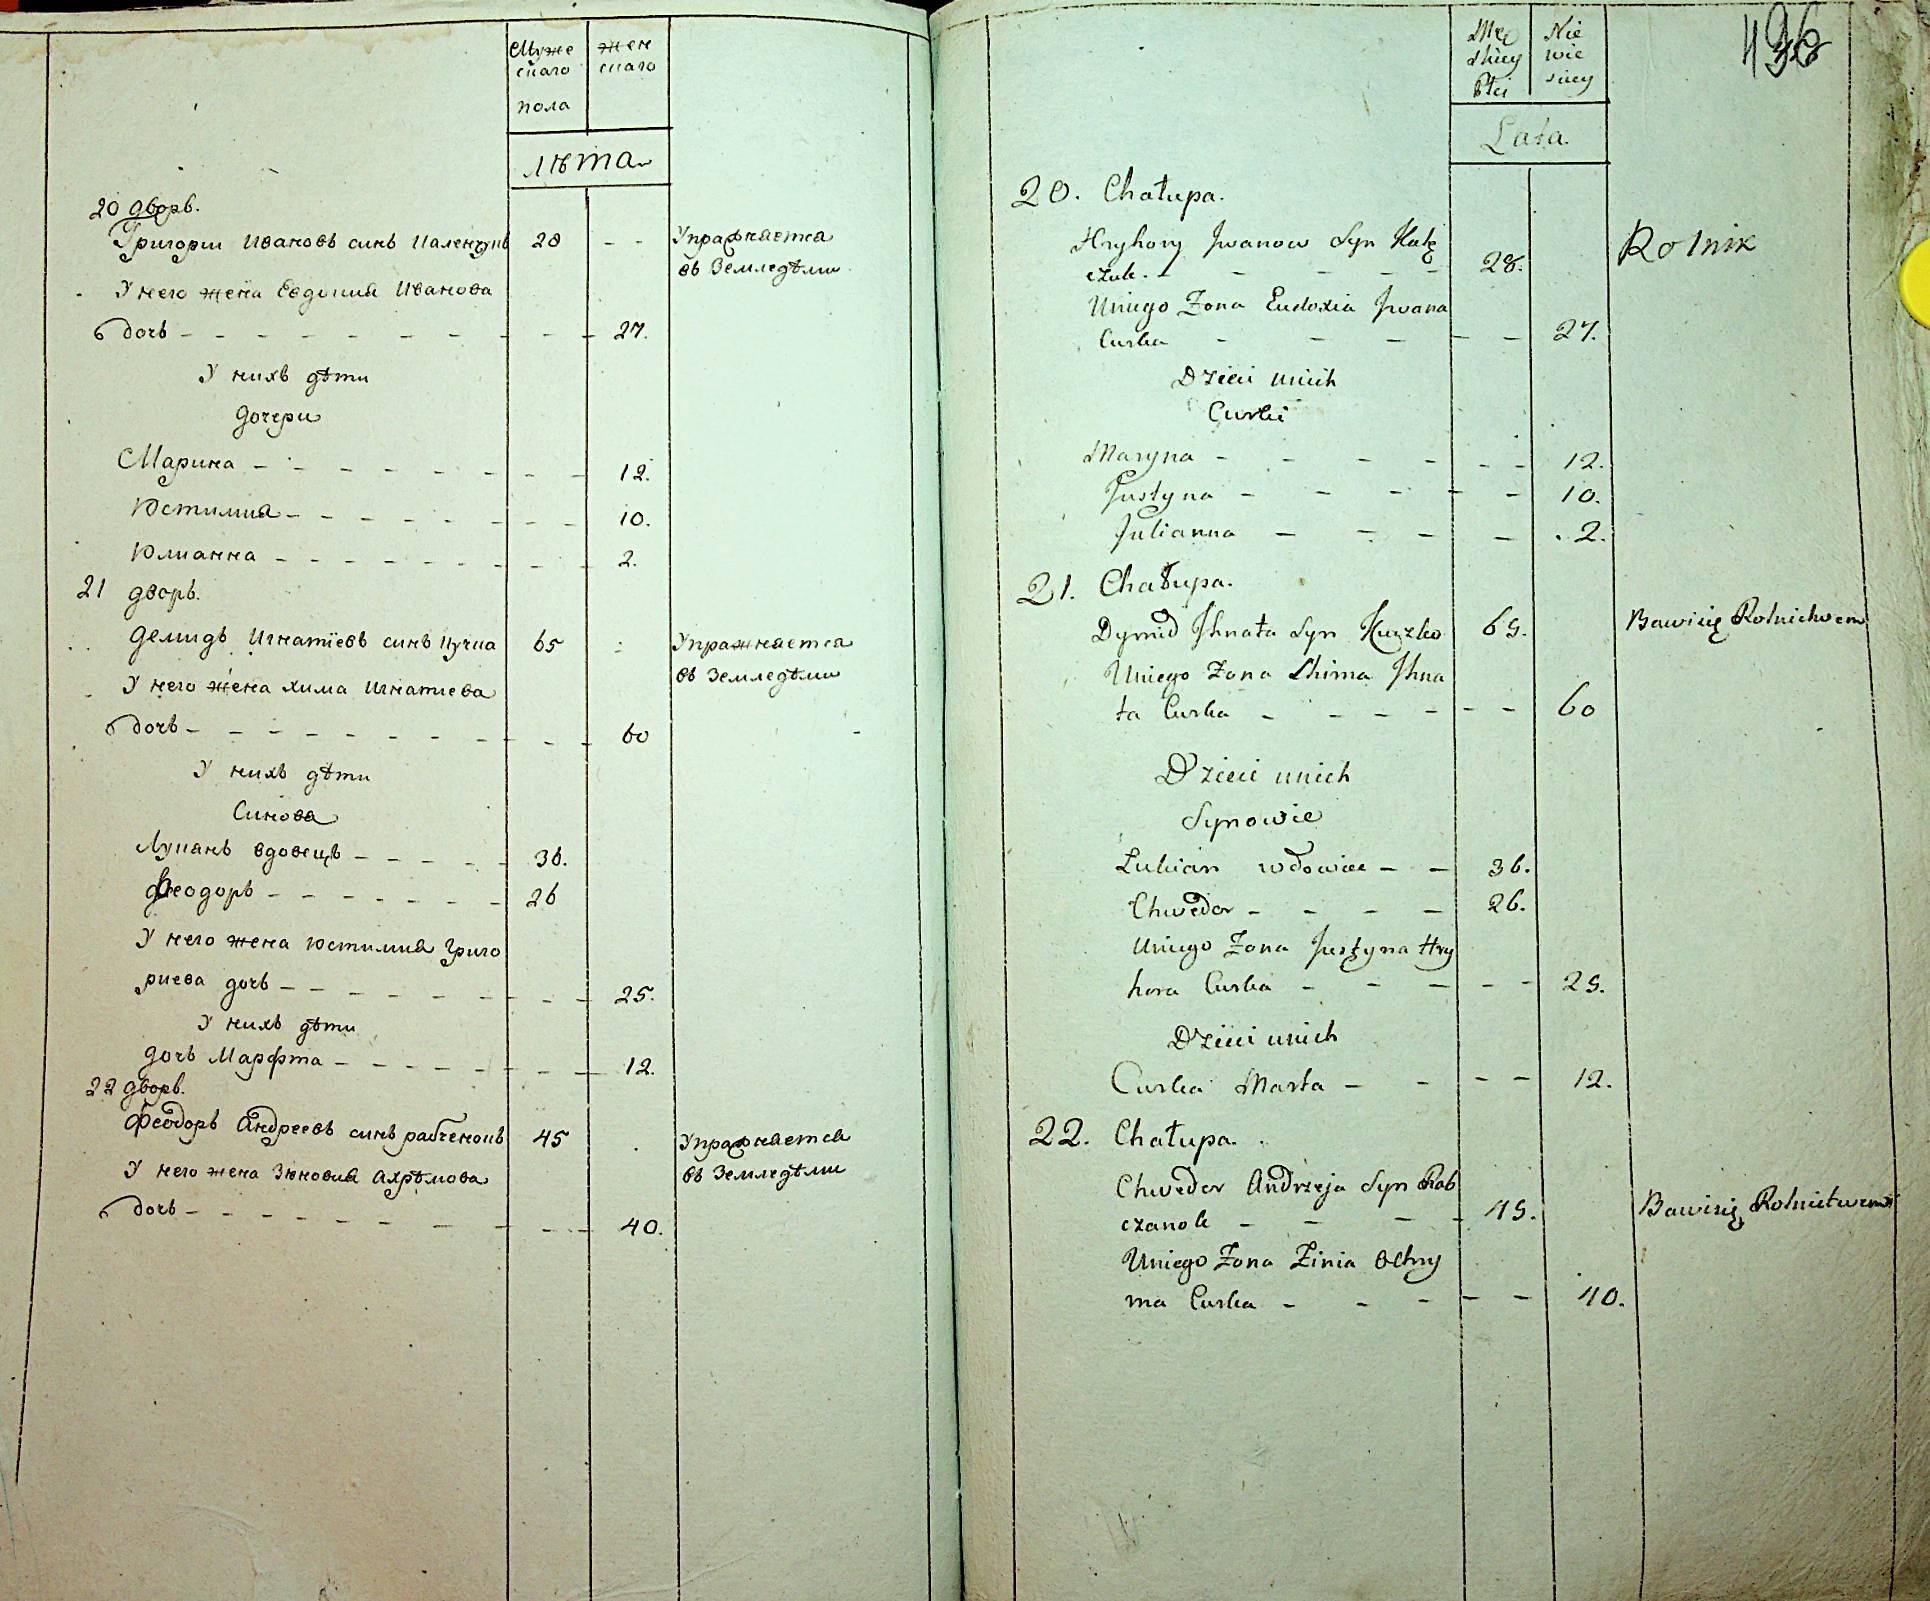 Муже
скаго
пола
жен
скаго
лѣта
20 дворъ.
Григорiи Ивановъ синъ Каленчукъ 28 - - Упражняется
въ Земледѣлiи
У него жена Евдокия Иванова
дочь - - - - - - - - - - 27.
У нихъ дѣти
дочери
Марина - - - - - - - - - 12.
Юстимия - - - - - - - - 10.
Юлианна - - - - - - - - - 2.
21 дворъ.
Демидъ Игнатiевъ синъ Кучка 65 Упражняется
въ Земледѣлiи
У него жена Хима Игнатиева
дочь - - - - - - - - - - - 60
У нихъ дѣти
Синова
Луканъ вдовецъ - - - - - 36.
Феодоръ - - - - - - - 26
У него жена Юстимия Григо
риева дочь - - - - - - - - 25.
У нихъ дѣти
дочь Марфта - - - - - - - 12.
22 дворъ.
Феодоръ Андреевъ синъ рабченокъ 45 Упражняется
въ Земледѣлiи
У него жена Зѣновия Ахрѣмова
дочь - - - - - - - - - - - 40.
Mę
skiey
Płci
Nie
wie
sciey
Lata.
20. Chałupa.
Hryhory Jwanow Syn Kalę
czuk. - - - - - 28. Rolnik
Uniego Zona Eudoxia Jwana
Curka - - - - - 27.
Dzieci unich
Curki
Maryna - - - - - - 12.
Justyna - - - - - 10.
Julianna - - - - 2.
21. Chałupa.
Dymid Jhnata Syn Kuczko 65. Bawisię Rolnictwem
Uniego Zona Chima Jhna
ta Curka - - - - - - - 60
Dzieci unich
Synowie
Lukian wdowiec - - 36.
Chwedor - - - - 26.
Uniego Zona Justyna Hry
hora Curka - - - - - 25.
Dzieci unich
Curka Marta - - - - 12.
22. Chałupa.
Chwedor Andrzeja Syn Rab
czanok - - - - 45. Bawisię Rolnictwem
Uniego Zona Zinia Ochry
ma Curka - - - - - 40.